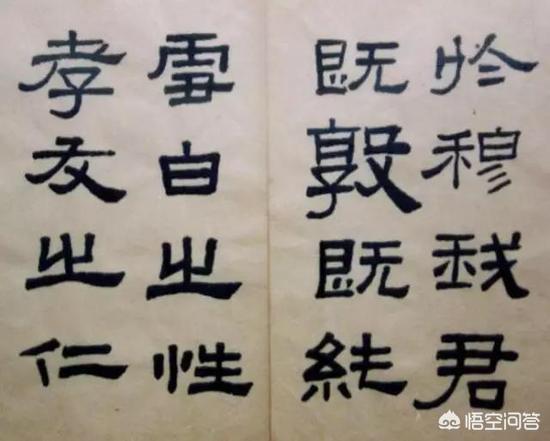 於穆我君
既敦既純
雪白之性
孝友之仁
悟空问答